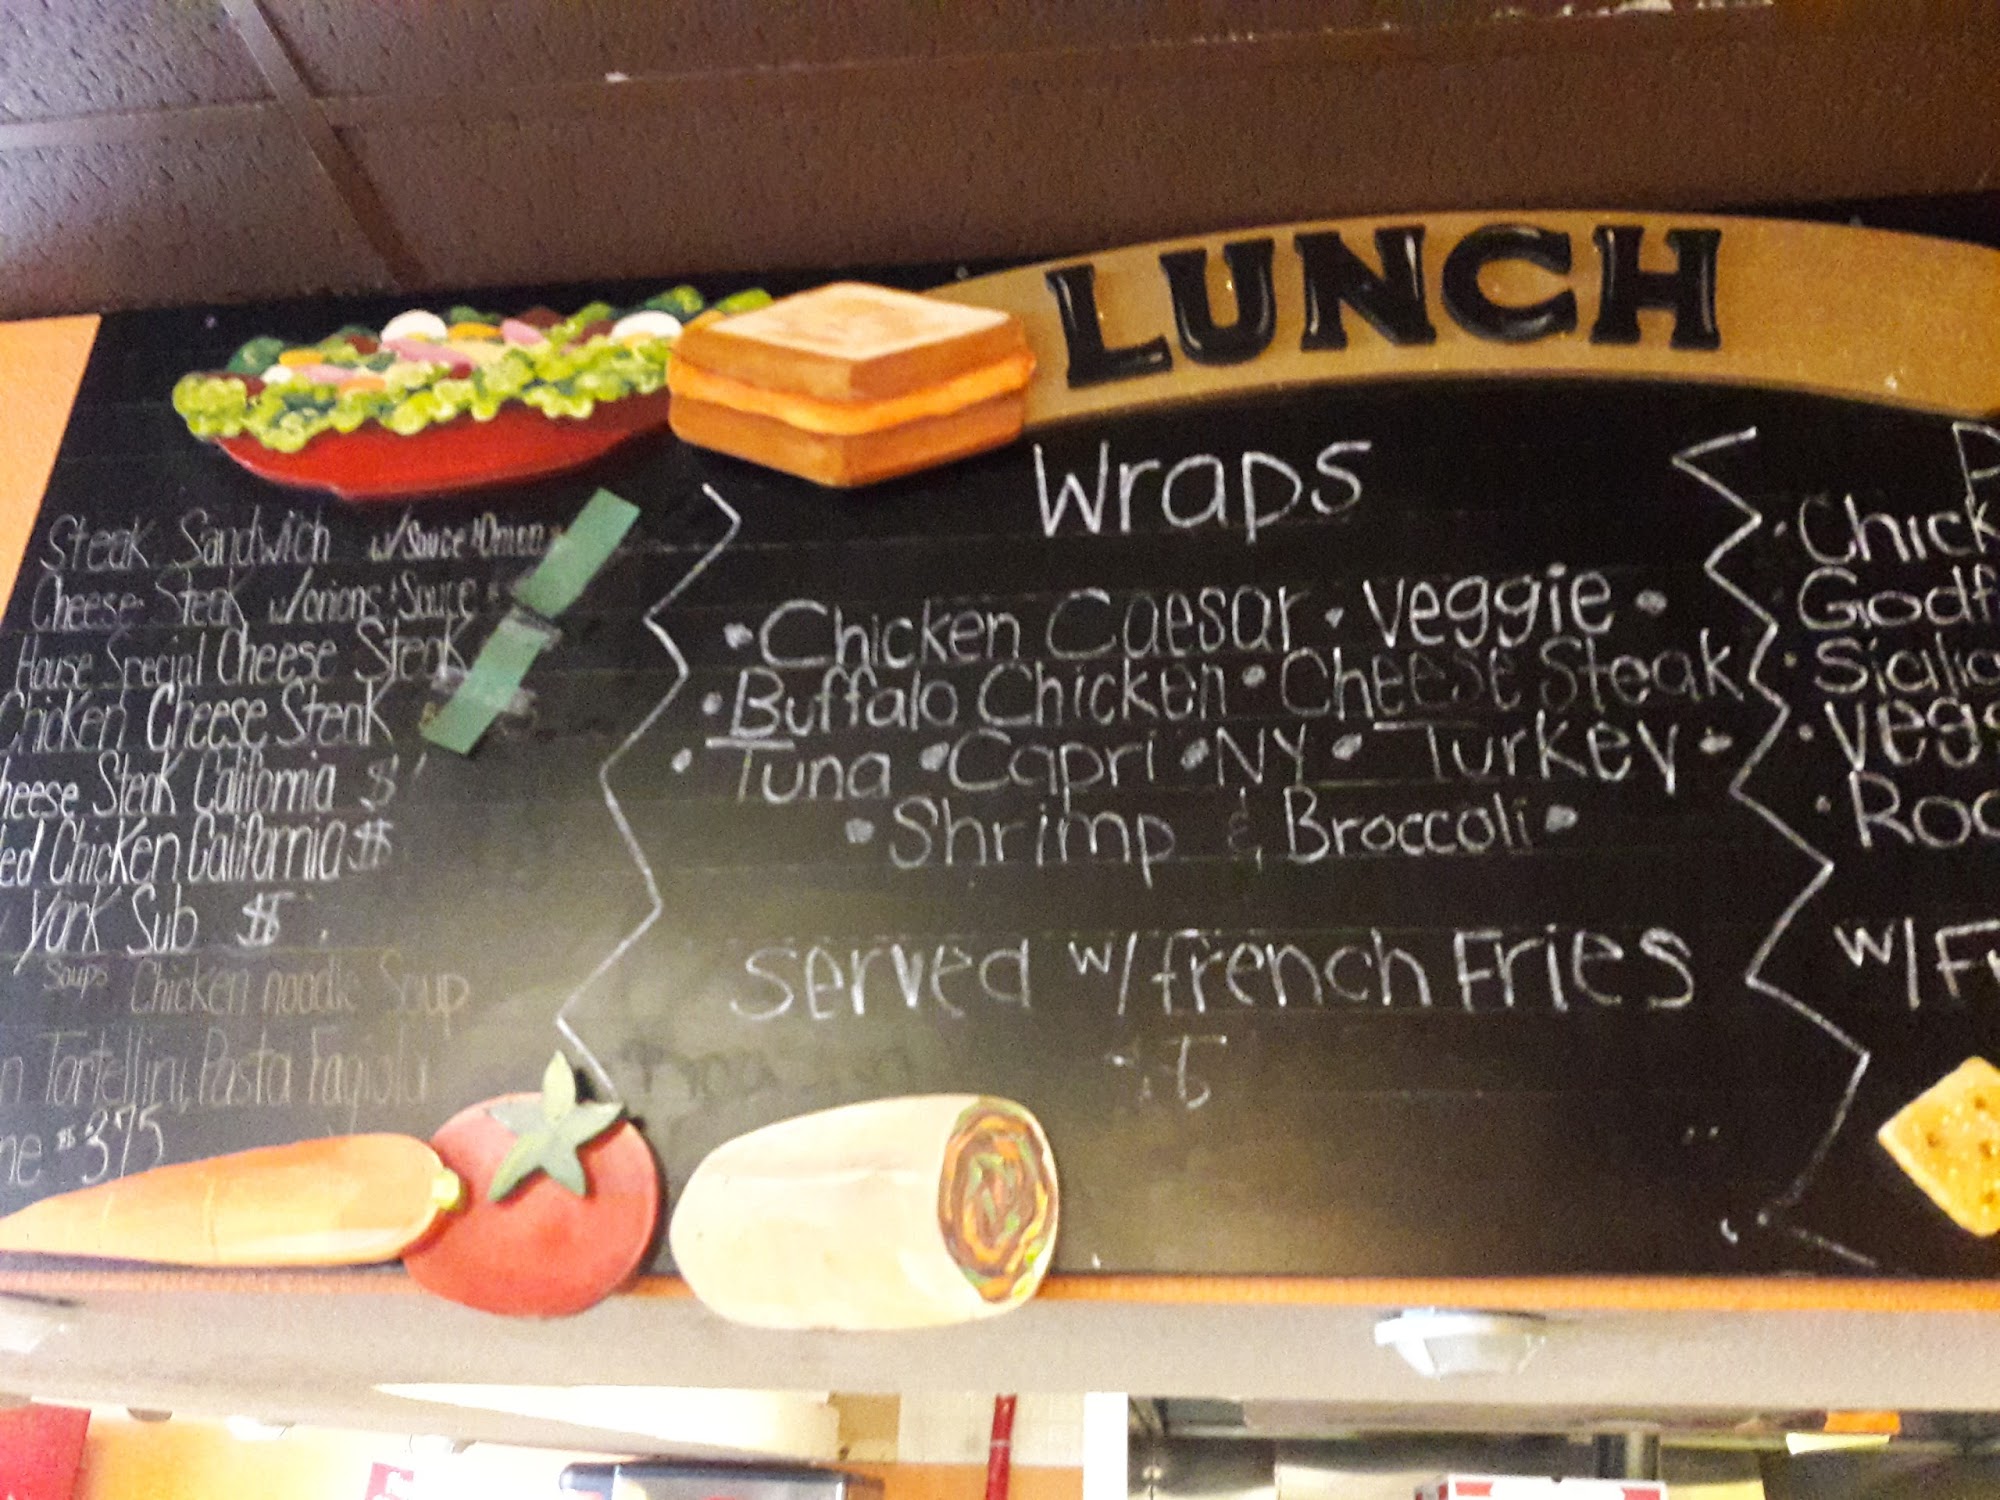 LUNCH
Steak Sandwich w/Sauce & Onion
Cheese Steak w/onions & Sauce
House Special Cheese Steak
Chicken Cheese Steak
heese Steak California $
ed Chicken California $
York Sub $
Soups Chicken noodle Soup
n Tortellini, Pasta Fagiola
ne $375
Wraps
• Chicken Caesar • Veggie •
• Buffalo Chicken • Cheese Steak
• Tuna • Capri • NY • Turkey •
• Shrimp & Broccoli •
Served w/french Fries
P
• Chick
Godf
• Sicilia
• Vegg
• Roc
w/Fr